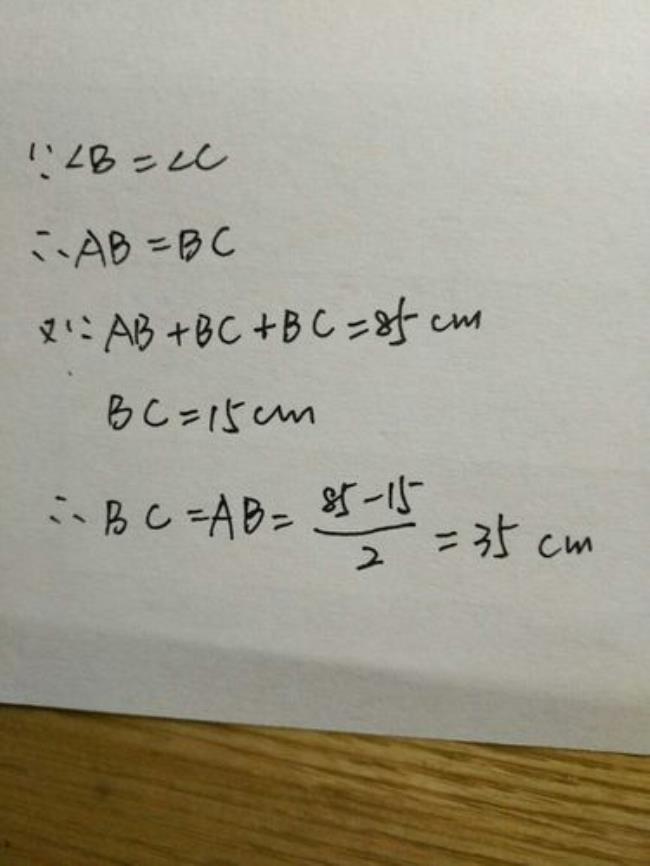 ∵∠B=∠C
∴AB=BC
又∵AB+BC+BC=85cm
BC=15cm
∴BC=AB=(85-15)/2=35cm